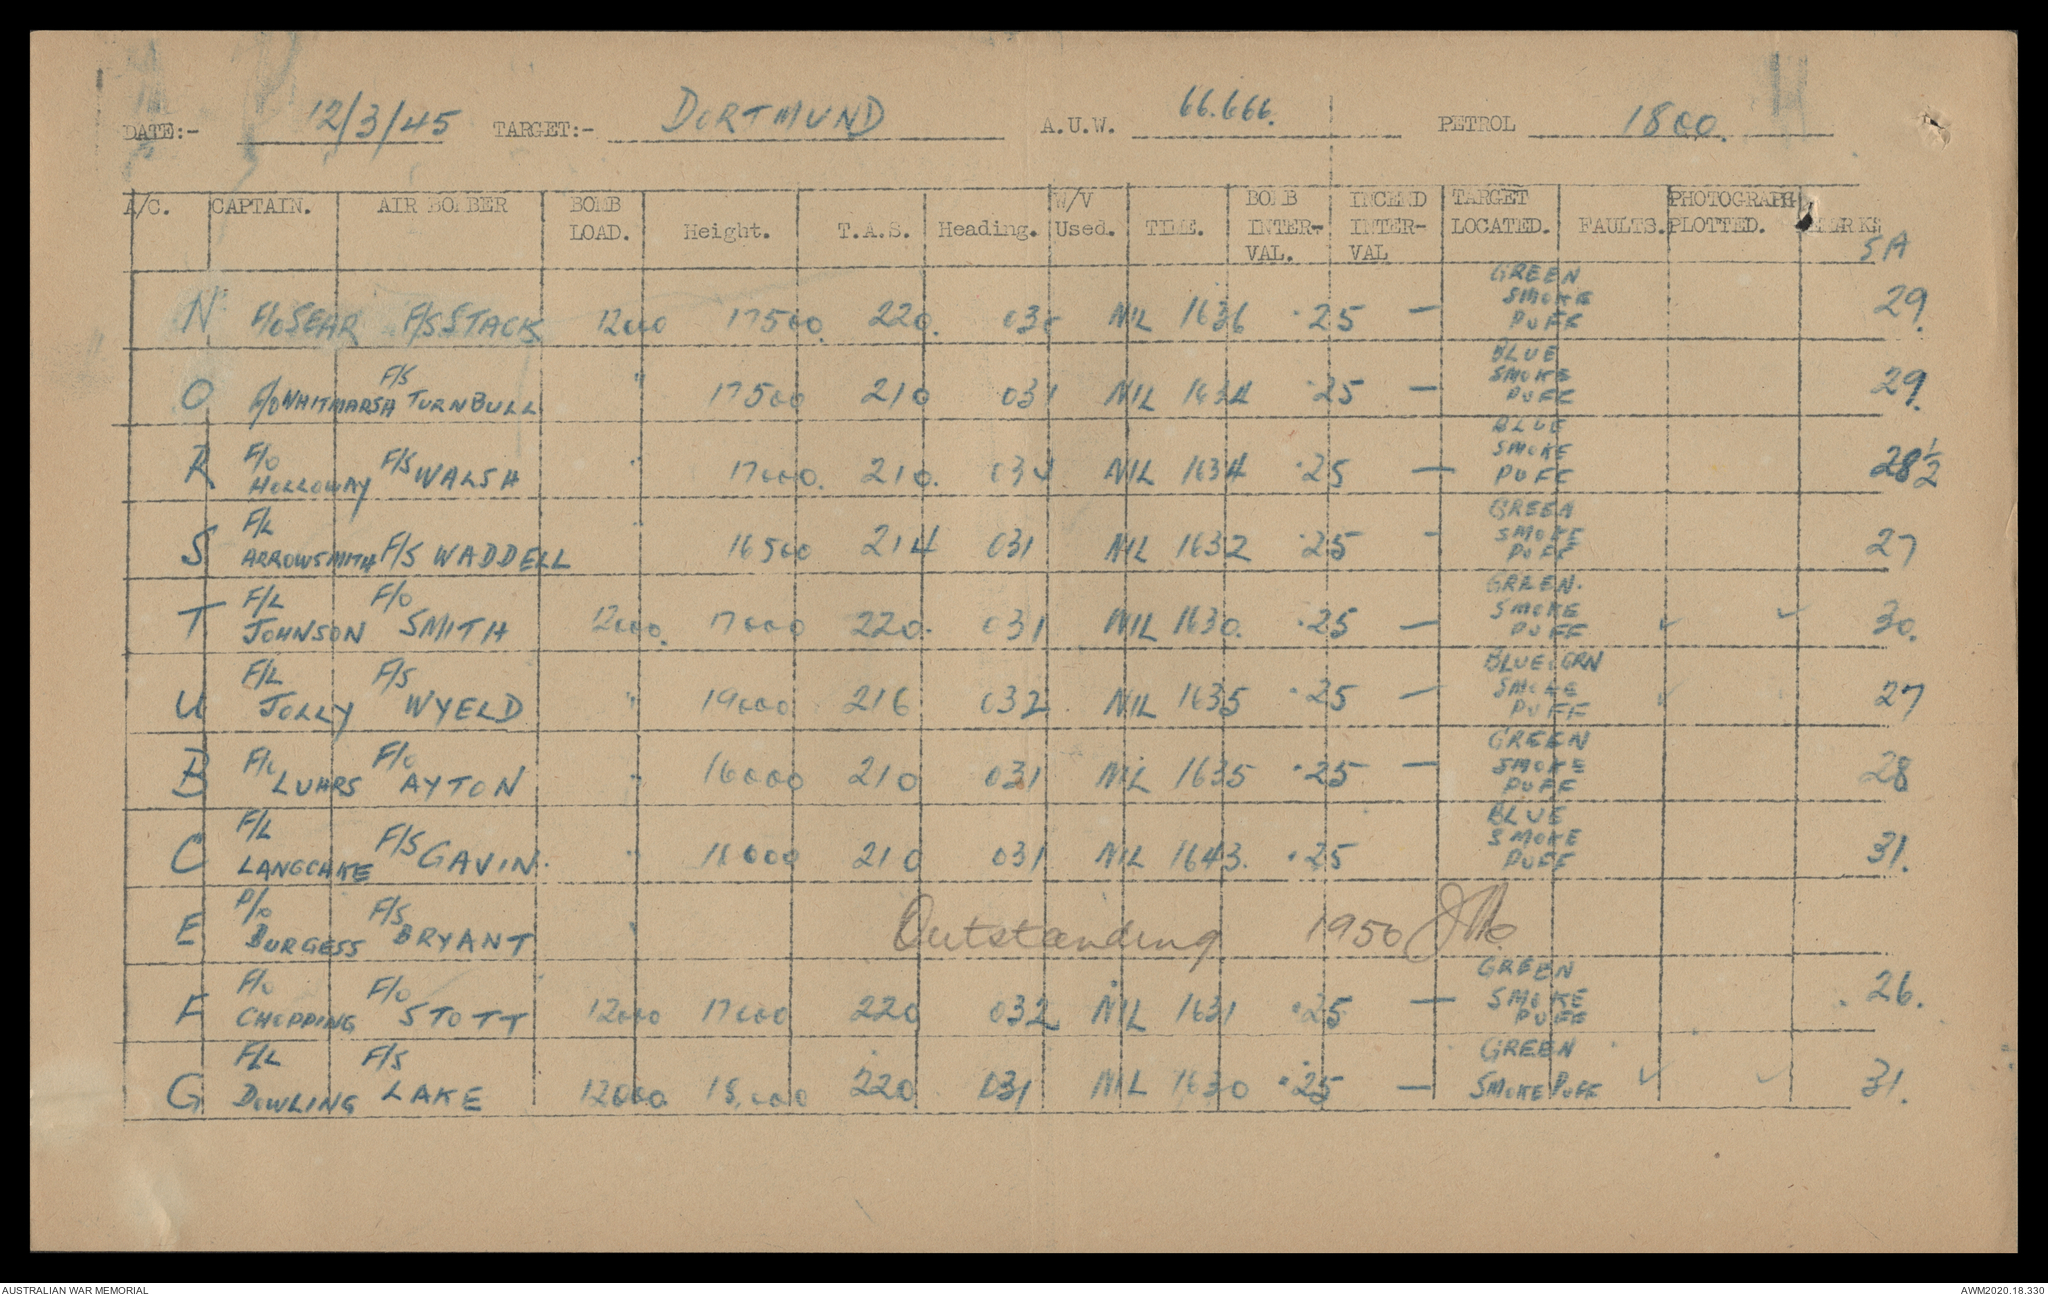 DATE:- 12/3/45 TARGET:- DORTMUND A.U.W. 66.666. PETROL 1800.
A/C. CAPTAIN. AIR BOMBER BOMB LOAD. Height. T.A.S. Heading. W/V Used. TIME. BOMB INTER-VAL. INCEND INTER-VAL TARGET LOCATED. FAULTS. PHOTOGRAPH PLOTTED. SA
N F/O SEAR F/S STACK 12000 17500. 220. NIL 1636 .25 — GREEN SMOKE PUFF 29.
O F/O WHITMARSH F/S TURNBULL " 17500 210 031 NIL 1634 .25 — BLUE SMOKE PUFF 29.
R F/O HOLLOWAY F/S WALSH " 17000. 210. NIL 1634 .25 — BLUE SMOKE PUFF 28½
S F/L ARROWSMITH F/S WADDELL " 16500 214 031 NIL 1632 .25 - GREEN SMOKE PUFF 27
T F/L JOHNSON F/O SMITH 12000. 17000 220. 031 NIL 1630. .25 — GREEN. SMOKE PUFF ✓ ✓ 30.
U F/L JOLLY F/S WYELD " 19000 216 032 NIL 1635 .25 — BLUE & GRN SMOKE PUFF ✓ 27
B F/O LUHRS F/O AYTON " 16000 210 031 NIL 1635 .25 — GREEN SMOKE PUFF 28
C F/L LANGCAKE F/S GAVIN. " 210 031 NIL 1643. .25 BLUE SMOKE PUFF 31.
E P/O BURGESS F/S BRYANT " Outstanding 1950
F F/O CHOPPING F/O STOTT 12000 17000 220 032 NIL 1631 .25 — GREEN SMOKE PUFF 26.
G F/L DOWLING F/S LAKE 12000. 18,000 220 031 NIL 1630 .25 — GREEN SMOKE PUFF ✓ ✓ 31.
AUSTRALIAN WAR MEMORIAL AWM2020.18.330